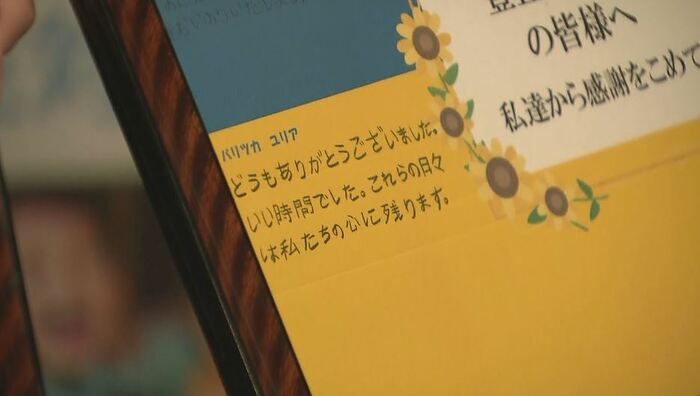 の皆様へ
私達から感謝をこめて
パリツカ ユリア
どうもありがとうございました。
いい時間でした。これらの日々
は私たちの心に残ります。